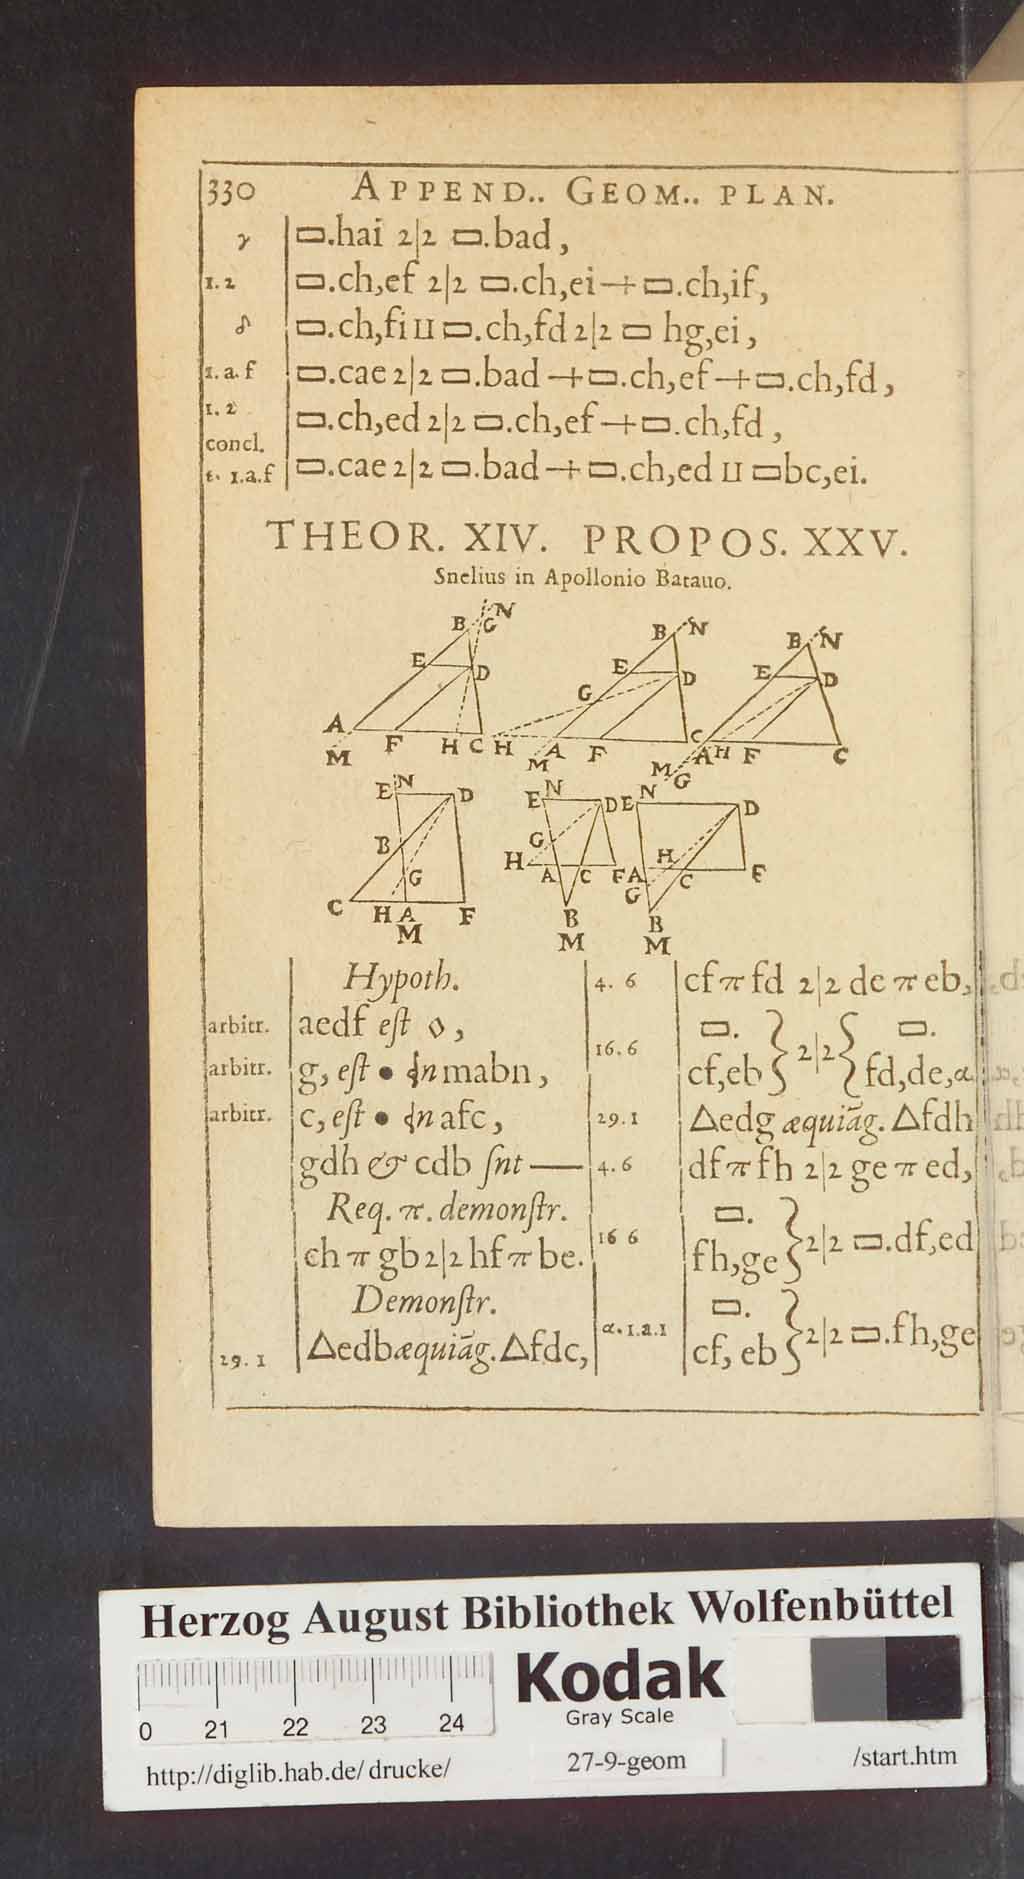 330 APPEND.. GEOM.. PLAN.
γ ▭.hai 2|2 ▭.bad,
1.2 ▭.ch,ef 2|2 ▭.ch,ei + ▭.ch,if,
▭.ch,fi II ▭.ch,fd 2|2 ▭ hg,ei,
1.a.f ▭.cae 2|2 ▭.bad + ▭.ch,ef + ▭.ch,fd,
1.2 ▭.ch,ed 2|2 ▭.ch,ef + ▭.ch,fd,
concl.
1.a.f ▭.cae 2|2 ▭.bad + ▭.ch,ed II ▭bc,ei.
THEOR. XIV. PROPOS. XXV.
Snelius in Apollonio Batauo.
B G N E D A M F H C
B N E D G H A M F C
B N E D A H F C M G
E N D B G C H A F M
E N D G H A C F B M
E N D H A C F G B M
Hypoth.
arbitr. aedf eſt ◊,
arbitr. g, eſt • in mabn,
arbitr. c, eſt • in afc,
gdh & cdb ſnt —
Req. π. demonſtr.
ch π gb 2|2 hf π be.
Demonſtr.
29. 1 △edb æquiāg. △fdc,
4. 6 cf π fd 2|2 de π eb,
▭. ▭.
16. 6 cf,eb } 2|2 { fd,de, α
29. 1 △edg æquiāg. △fdh
4. 6 df π fh 2|2 ge π ed,
▭.
16 6 fh,ge } 2|2 ▭.df,ed
▭.
α. 1.a.1 cf, eb } 2|2 ▭.fh,ge
Herzog August Bibliothek Wolfenbüttel
0 21 22 23 24
Kodak
Gray Scale
http://diglib.hab.de/ drucke/ 27-9-geom /start.htm